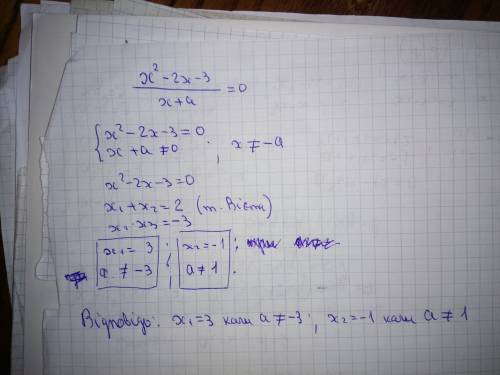 x² - 2x - 3 / x + a = 0
{ x² - 2x - 3 = 0
x + a ≠ 0 ; x ≠ -a
x² - 2x - 3 = 0
x₁ + x₂ = 2 (т. Вієта)
x₁ · x₂ = -3
x₁ = 3 ; x₂ = -1 ;
a ≠ -3 ; a ≠ 1 .
Відповідь: x₁ = 3 коли a ≠ -3 ; x₂ = -1 коли a ≠ 1